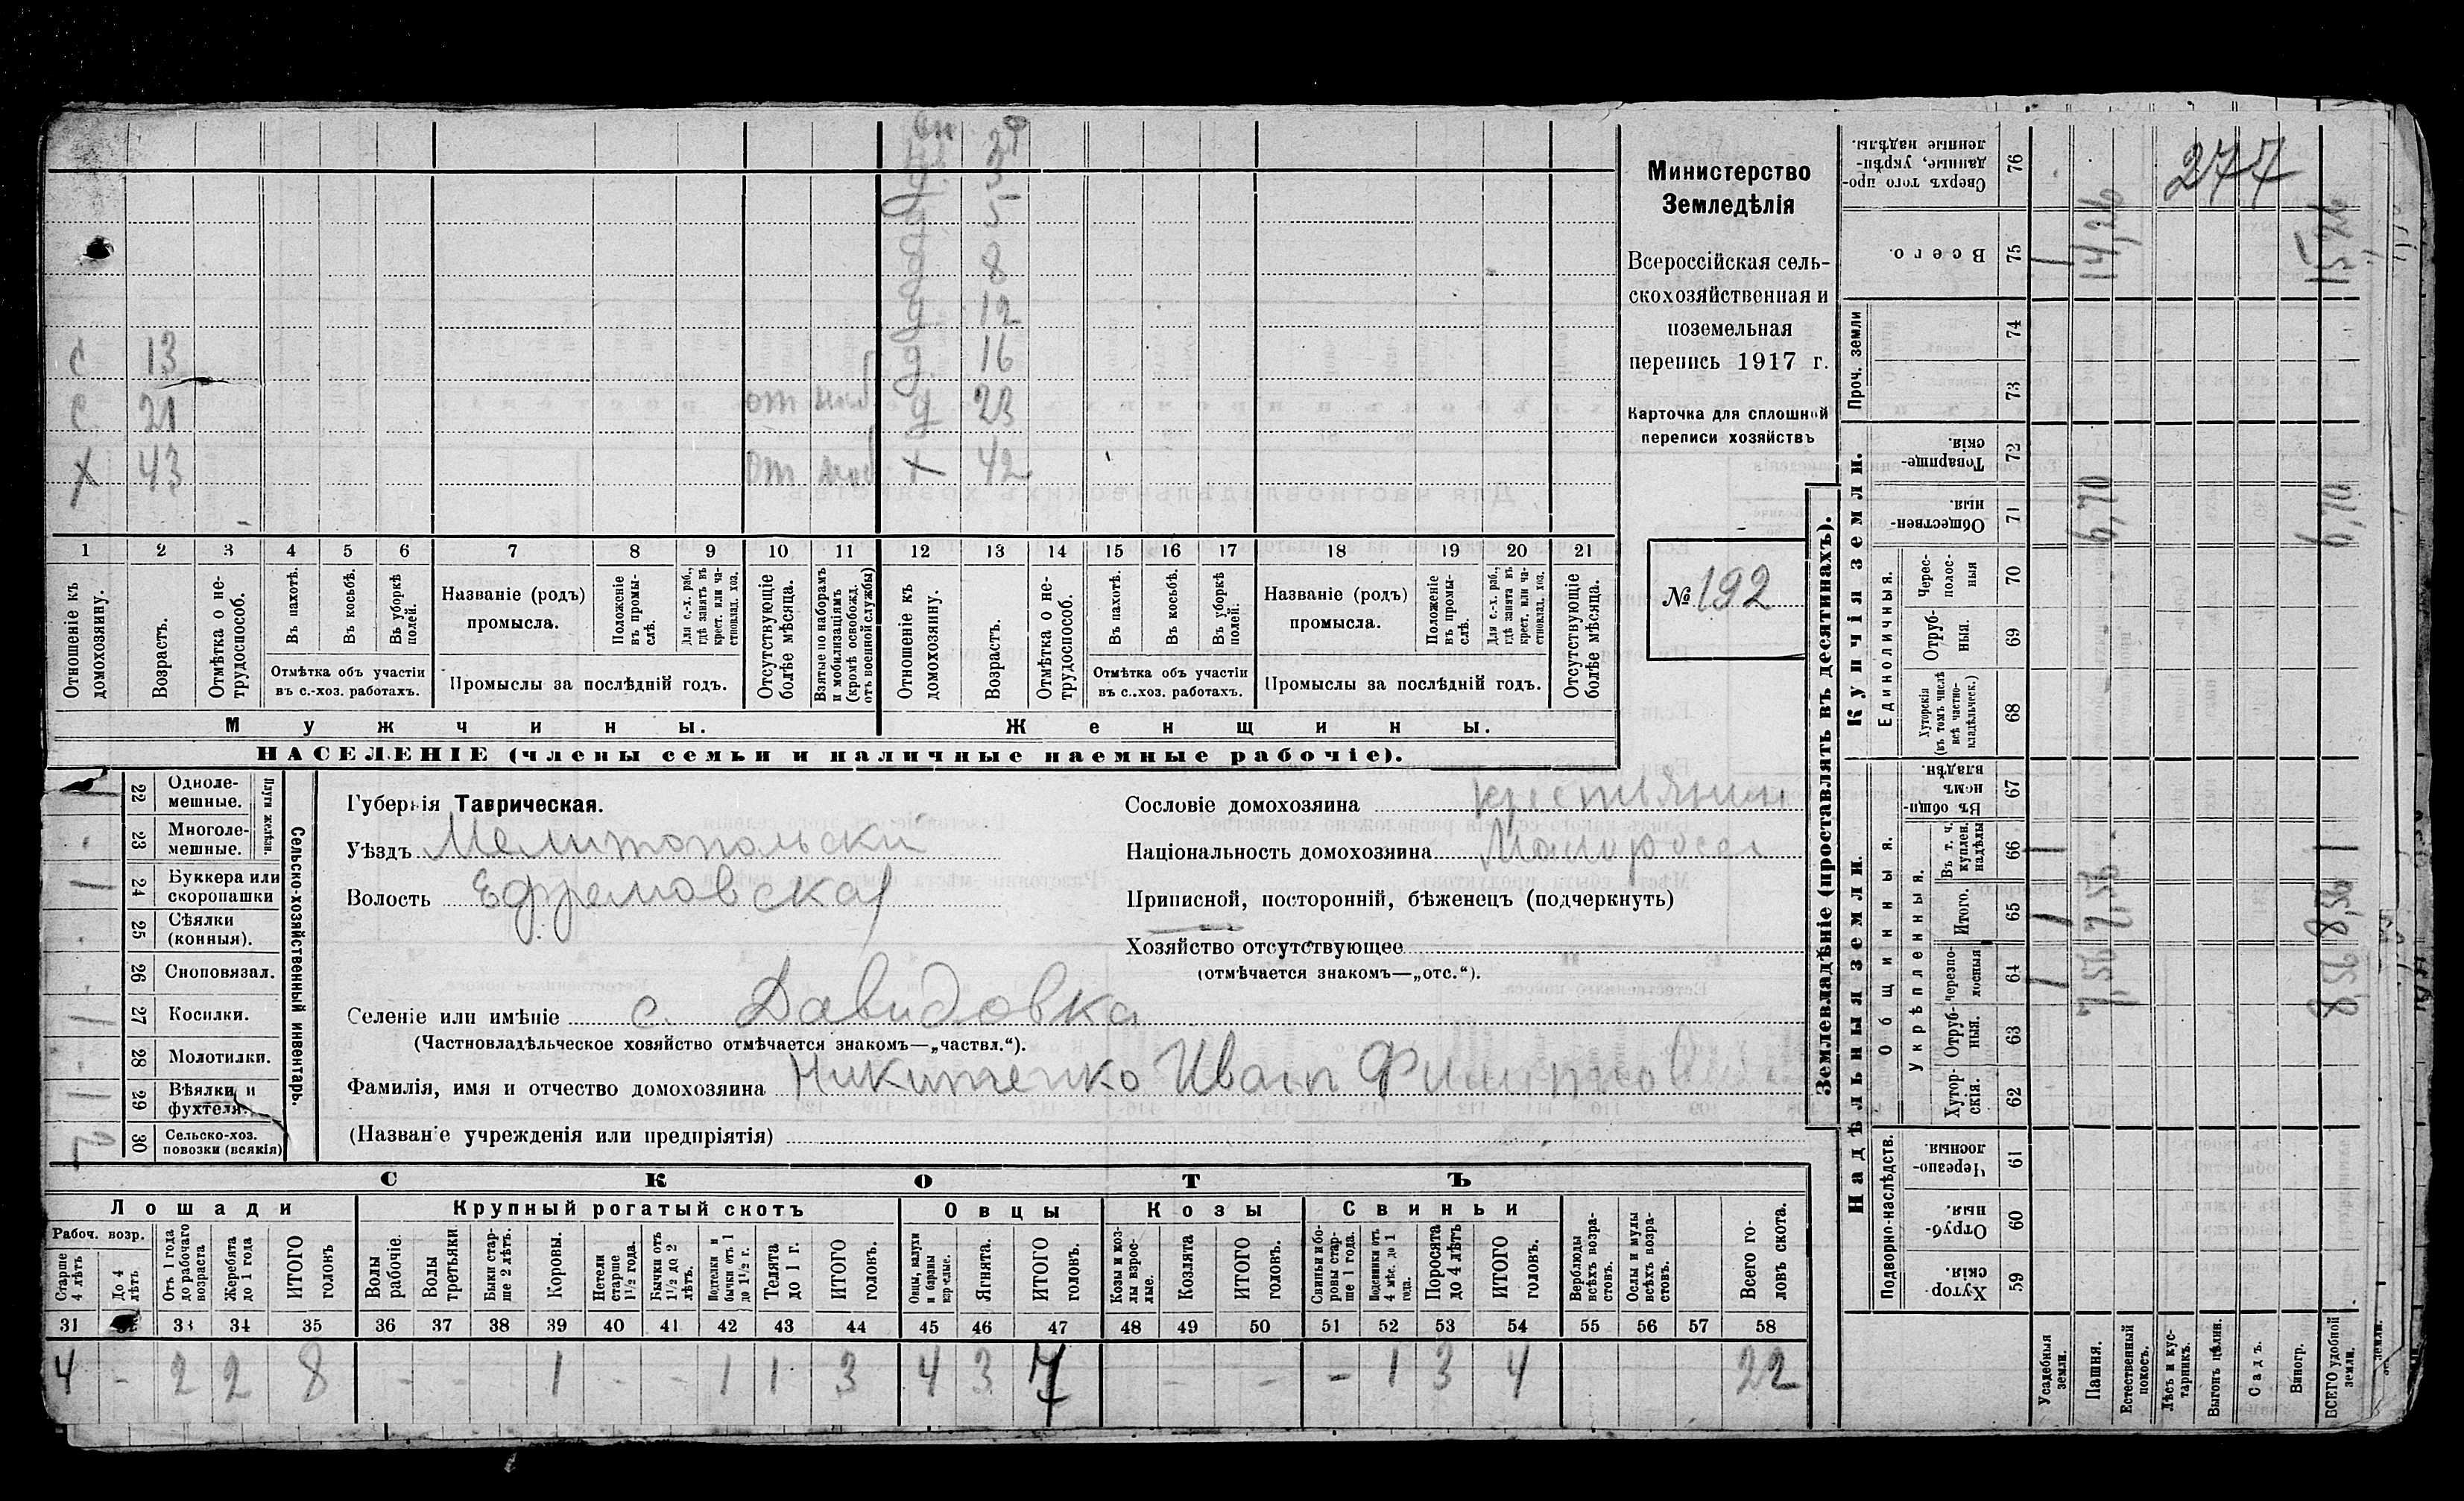 277
вн 20
д 3
д 5
д 8
д 12
с 13 д 16
с 21 от моб д 23
х 43 от моб х 42
1 2 3 4 5 6 7 8 9 10 11 12 13 14 15 16 17 18 19 20 21
Отношеніе къ домохозяину.
Возрастъ.
Отмѣтка о нетрудоспособ.
Въ пахотѣ.
Въ косьбѣ.
Въ уборкѣ полей.
Отмѣтка объ участіи
въ с.-хоз. работахъ.
Названіе (родъ)
промысла.
Положеніе въ промыслѣ.
Для с.-х. раб., гдѣ занятъ въ крест. или частновлад. хоз.
Промыслы за послѣдній годъ.
Отсутствующіе болѣе мѣсяца.
Взятые по наборамъ и мобилизаціямъ (кромѣ освобожд. отъ военной службы)
Отношеніе къ домохозяину.
Возрастъ.
Отмѣтка о нетрудоспособ.
Въ пахотѣ.
Въ косьбѣ.
Въ уборкѣ полей.
Отмѣтка объ участіи
въ с..хоз. работахъ.
Названіе (родъ)
промысла.
Положеніе въ промыслѣ.
Для с.-х. раб., гдѣ занята въ крест. или частновлад. хоз.
Промыслы за послѣдній годъ.
Отсутствующіе болѣе мѣсяца.
Мужчины. Женщины.
НАСЕЛЕНІЕ (члены семьи и наличные наемные рабочіе).
Министерство
Земледѣлія
Всероссійская сель-
скохозяйственная и
поземельная
перепись 1917 г.
Карточка для сплошной
переписи хозяйствъ
№ 192
22 Одноле-
мешные.
23 Многоле-
мешные.
Плуги желѣзн.
24 Буккера или
скоропашки 1
25 Сѣялки
(конныя).
26 Сноповязал.
27 Косилки. 1
28 Молотилки.
29 Вѣялки и
фухтеля. 1
30 Сельско-хоз.
повозки (всякія)
Сельско-хозяйственный инвентарь.
Губернія Таврическая.
Уѣздъ Мелитопольскій
Волость Ефремовская
Селеніе или имѣніе с. Давидовка
(Частновладѣльческое хозяйство отмѣчается знакомъ—„частвл.“).
Фамилія, имя и отчество домохозяина Никитенко Иван Филиппов
(Названіе учрежденія или предпріятія)
Сословіе домохозяина крестьянин
Національность домохозяина Малоросс
Приписной, посторонній, бѣженецъ (подчеркнуть)
Хозяйство отсутствующее
(отмѣчается знакомъ—„отс.“).
СКОТЪ
Лошади Крупный рогатый скотъ Овцы Козы Свиньи
Рабоч. возр.
Старше 4 лѣтъ
До 4 лѣтъ.
Отъ 1 года до рабочаго возраста
Жеребята до 1 года
ИТОГО головъ
Волы рабочіе.
Волы третьяки
Быки старше 2 лѣтъ.
Коровы.
Нетели старше 1½ года.
Бычки отъ 1½ до 2 лѣтъ.
Подтелки и бычки отъ 1 до 1½ г.
Телята до 1 г.
ИТОГО головъ.
Овцы, валухи и бараны взрослые.
Ягнята.
ИТОГО головъ.
Козы и козлы взрослые.
Козлята
ИТОГО головъ.
Свиньи и боровы старше 1 года.
Подсвинки отъ 4 мѣс. до 1 года.
Поросята до 4 лѣтъ
ИТОГО головъ.
Верблюды всѣхъ возрастовъ.
Ослы и мулы всѣхъ возрастовъ.
Всего головъ скота.
31 33 34 35 36 37 38 39 40 41 42 43 44 45 46 47 48 49 50 51 52 53 54 55 56 57 58
4 - 2 2 8 - - 1 - - 1 1 3 4 3 7 - - - 1 3 4 22
Землевладѣніе (проставлять въ десятинахъ).
Надѣльныя земли. Купчія земли.
Подворно-наслѣдств.
Общинныя.
Укрѣпленныя.
Единоличныя.
Проч. земли
Хуторскія 59
Отрубныя. 60
Черезполосныя. 61
Хуторскія. 62
Отрубныя. 63
черезполосныя 64
Итого. 65
Въ т. ч. куплен. надѣлы 66
Въ общинномъ владѣн. 67
Хуторскія (въ томъ числѣ всѣ частновладѣльческ.) 68
Отрубныя. 69
Чересполосныя 70
Общественныя. 71
Товарищескія. 72
73
74
Всего. 75
Сверхъ того проданные, укрѣпленные надѣлы. 76
Усадебныя земли. 1 1 1 1
Пашня. 7,56 7,56 6,70 14,26
Естественный покосъ.
Лѣсъ и кустарникъ.
Выгонъ цѣлин.
Садъ.
Виногр.
ВСЕГО удобной земли. 8,56 8,56 1 6,70 15,26